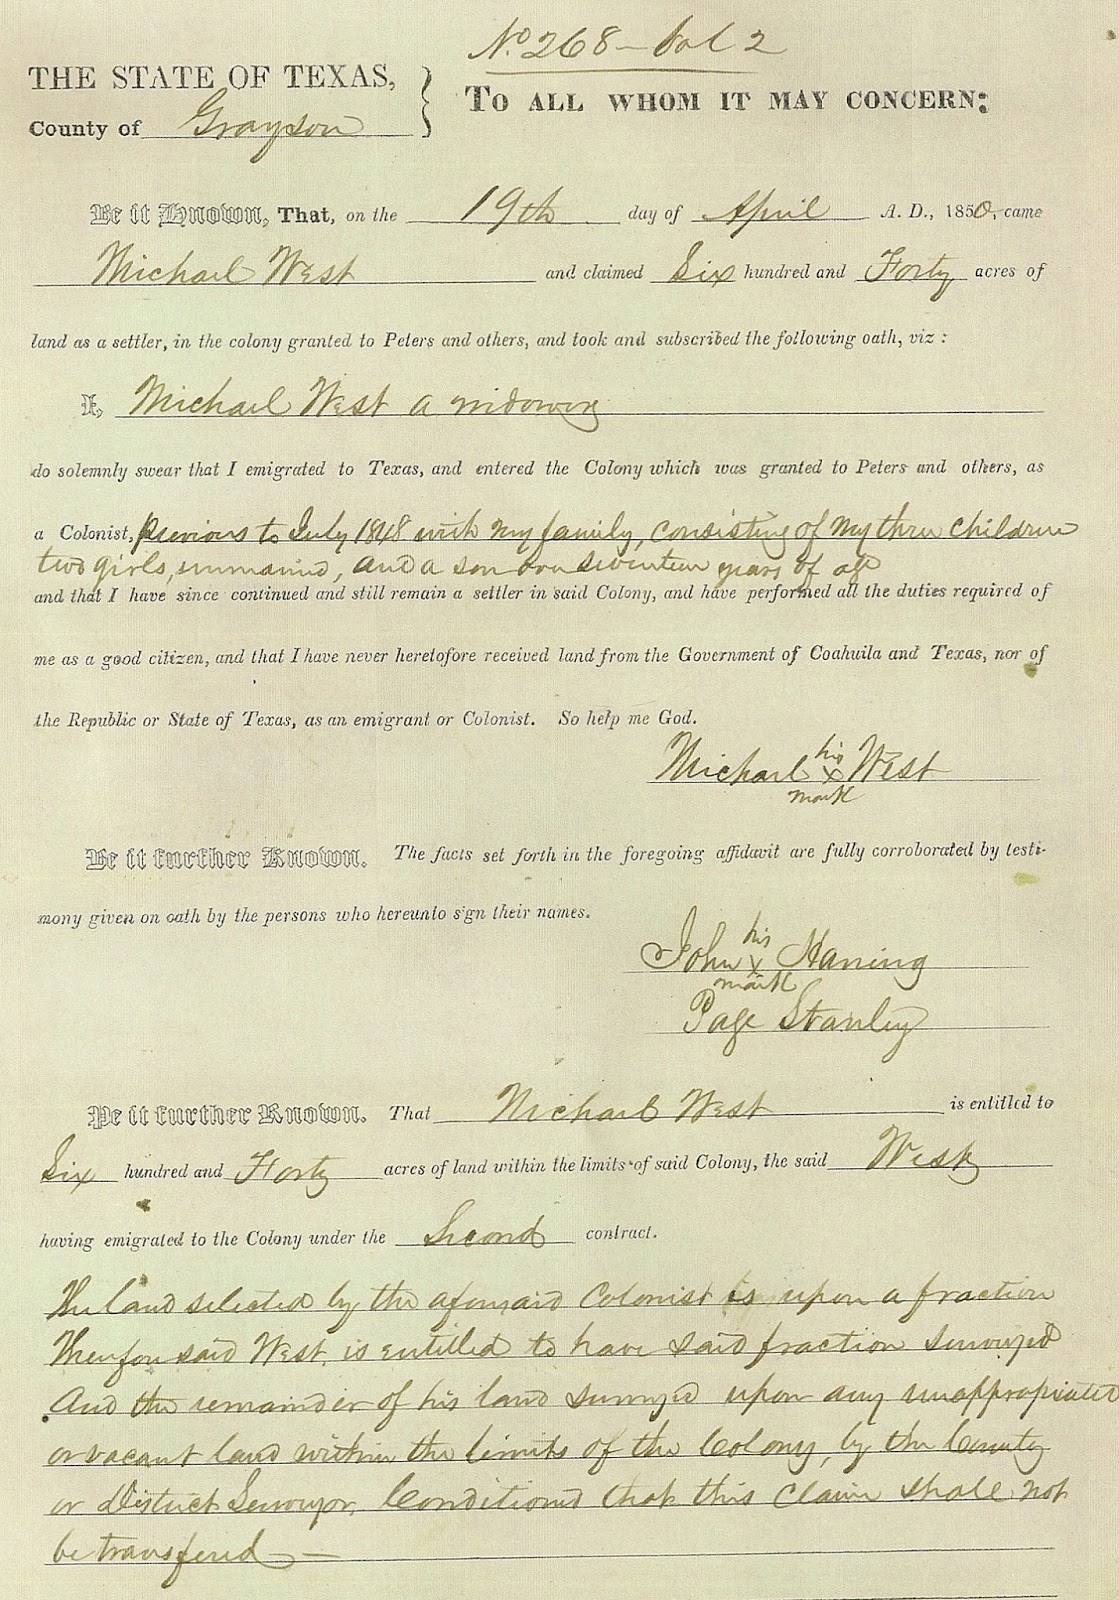 No 268 - Vol 2
THE STATE OF TEXAS,
County of Grayson
TO ALL WHOM IT MAY CONCERN:
Be it Known, That, on the 19th day of April A. D., 1850, came
Michael West and claimed Six hundred and Forty acres of
land as a settler, in the colony granted to Peters and others, and took and subscribed the following oath, viz:
I, Michael West a widower
do solemnly swear that I emigrated to Texas, and entered the Colony which was granted to Peters and others, as
a Colonist, previous to July 1848 with my family, consisting of my three children
two girls, unmarried, and a son over seventeen years of age
and that I have since continued and still remain a settler in said Colony, and have performed all the duties required of
me as a good citizen, and that I have never heretofore received land from the Government of Coahuila and Texas, nor of
the Republic or State of Texas, as an emigrant or Colonist. So help me God.
his
Michael X West
mark
Be it further Known. The facts set forth in the foregoing affidavit are fully corroborated by testi-
mony given on oath by the persons who hereunto sign their names.
his
John X Haning
mark
Page Stanley
Be it further Known. That Michael West is entitled to
Six hundred and Forty acres of land within the limits of said Colony, the said West
having emigrated to the Colony under the Second contract.
The land selected by the aforesaid Colonist is upon a fraction
Therefore said West is entitled to have said fraction surveyed
And the remainder of his land surveyed upon any unappropriated
or vacant land within the limits of the Colony, by the County
or District Surveyor, Conditioned that this claim shall not
be transfered —